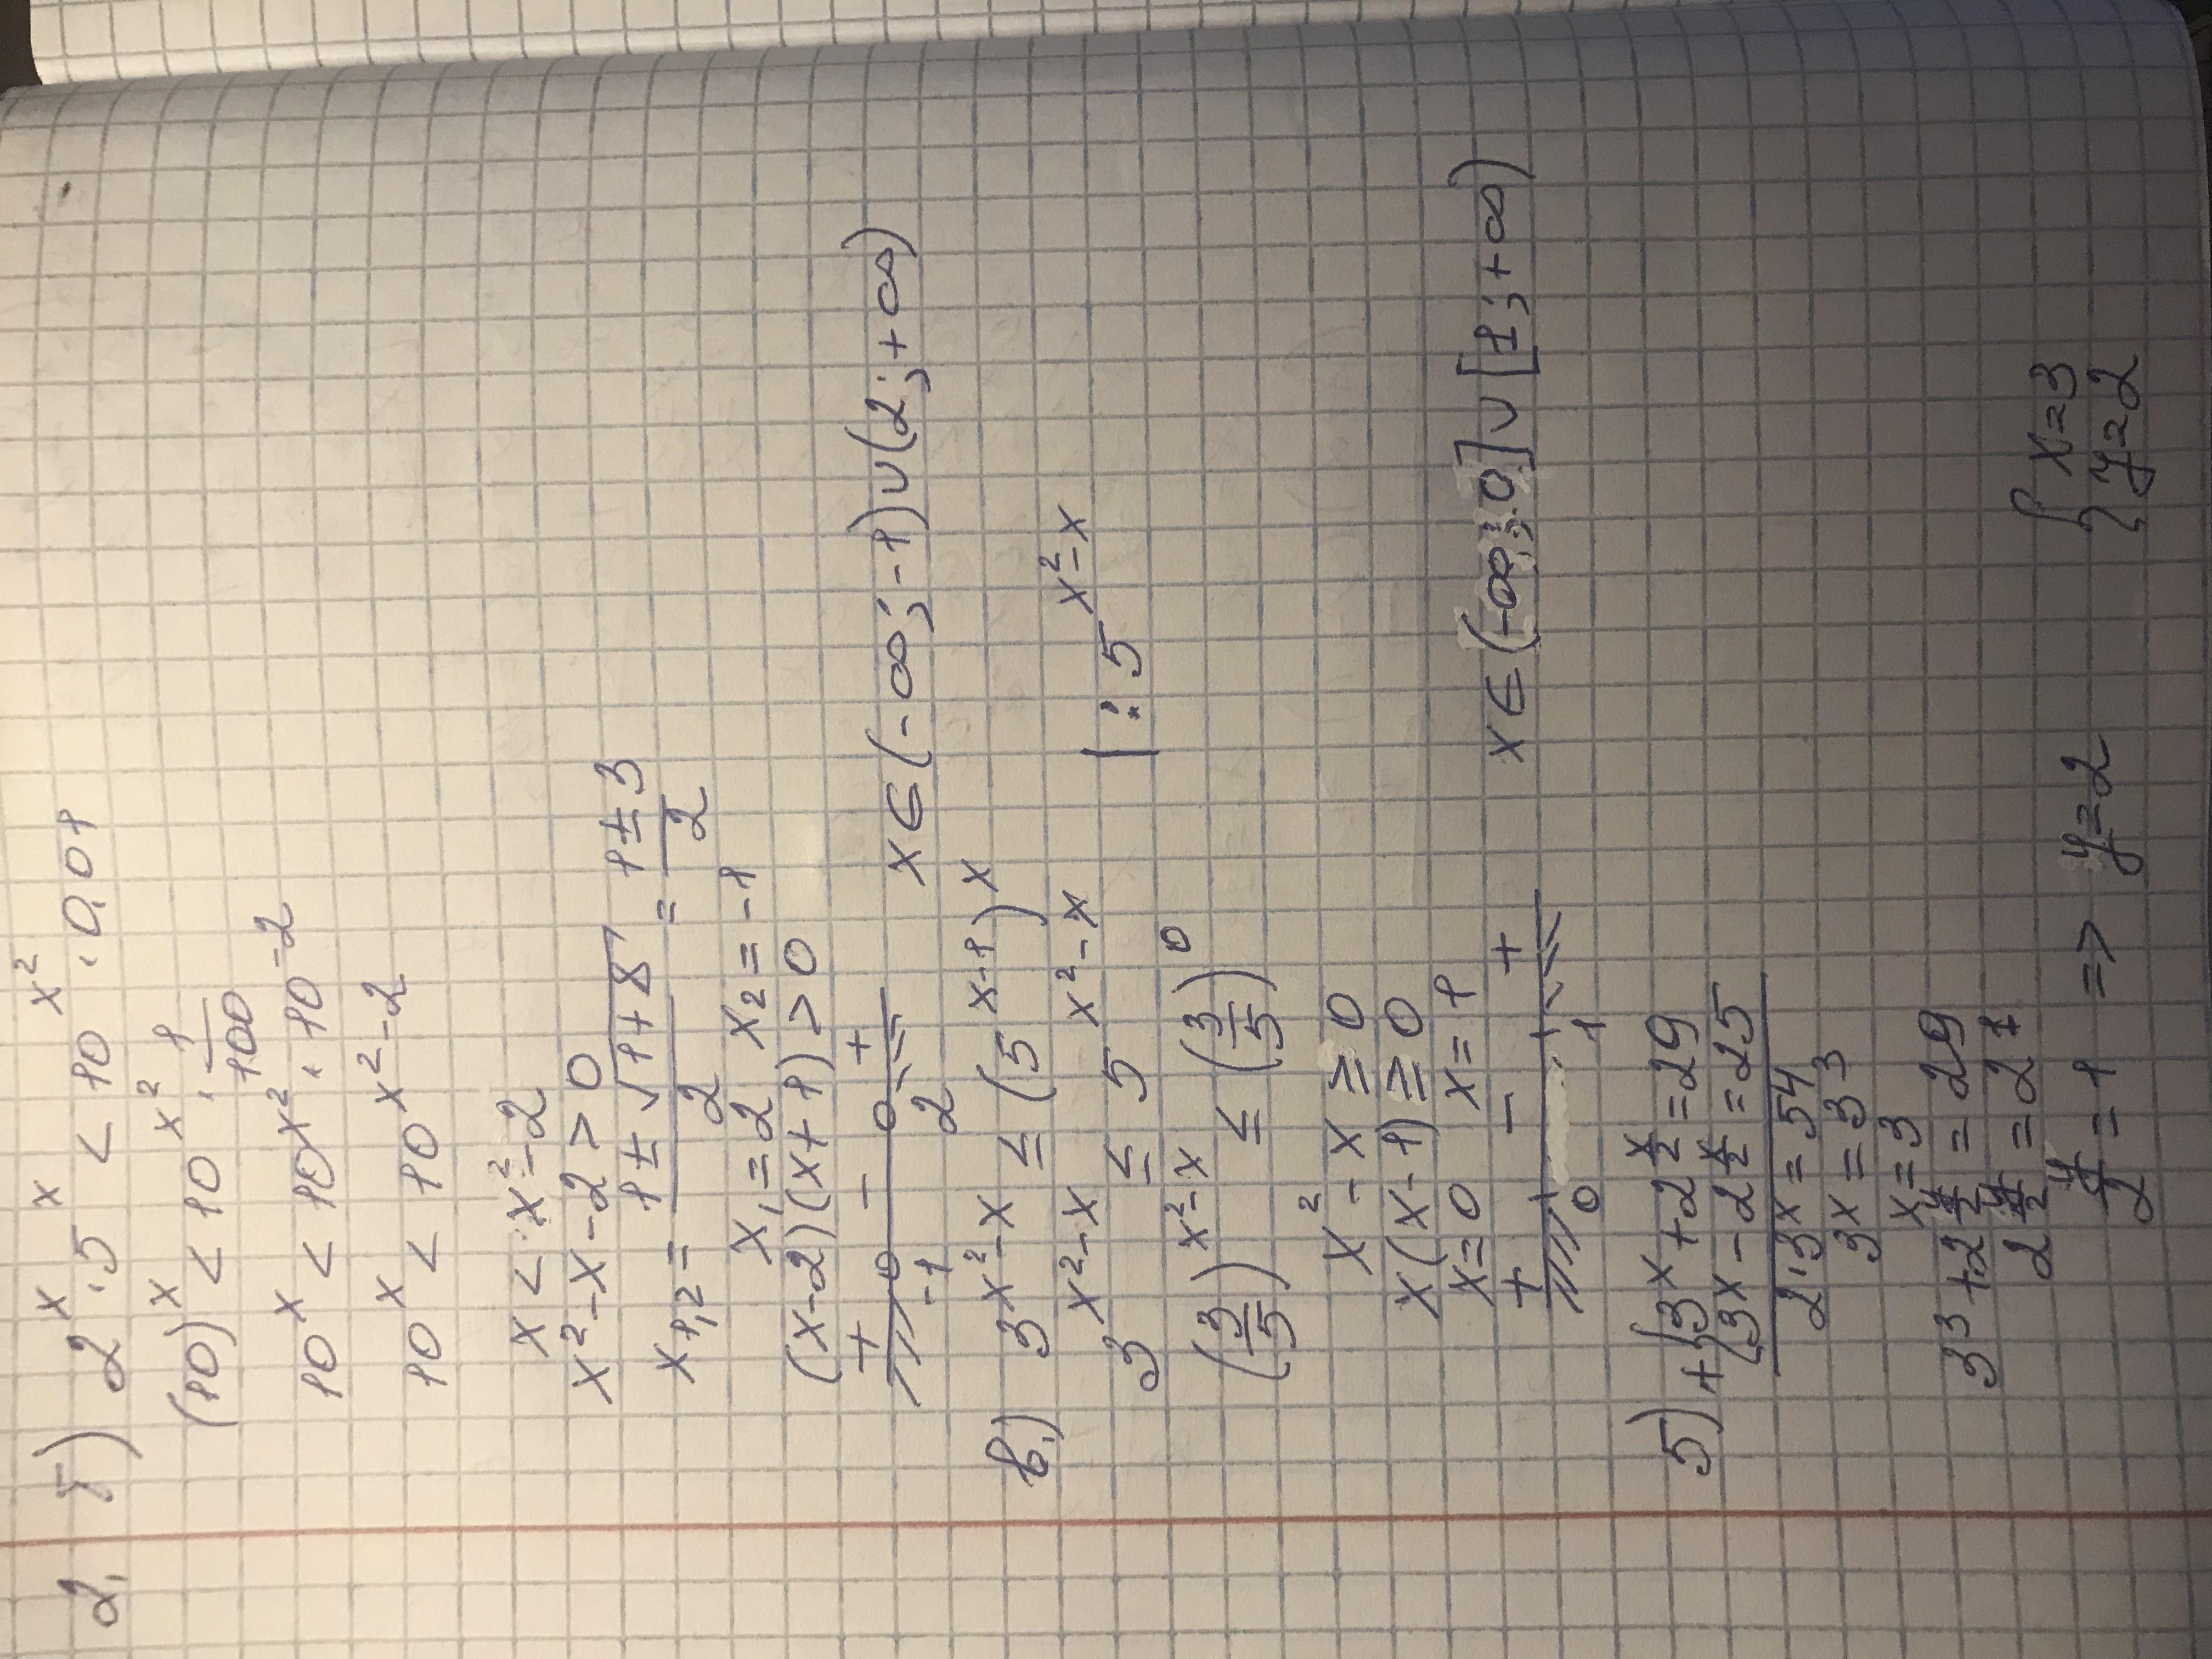 2. б) 2^x · 5^x < 10^{x^2} · 0,01
(10)^x < 10^{x^2} · 1/100
10^x < 10^{x^2} · 10^{-2}
10^x < 10^{x^2-2}
x < x^2-2
x^2-x-2>0
x_{1,2} = (1±√(1+8))/2 = (1±3)/2
x_1=2 x_2=-1
(x-2)(x+1)>0
+ - +
-1 2 x∈(-∞;-1)∪(2;+∞)
в.) 3^{x^2-x} ≤ (5^{x-1})^x
3^{x^2-x} ≤ 5^{x^2-x} |:5^{x^2-x}
(3/5)^{x^2-x} ≤ (3/5)^0
x^2-x ≥ 0
x(x-1) ≥ 0
x=0 x=1
+ - +
0 1 x∈(-∞;0]∪[1;+∞)
5) + { 3^x+2^{x/2}=29
3^x-2^{x/2}=25
2·3^x=54
3^x=3^3
x=3
3^3+2^{y/2}=29
2^{y/2}=2^1
y/2=1 => y=2 { x=3
y=2